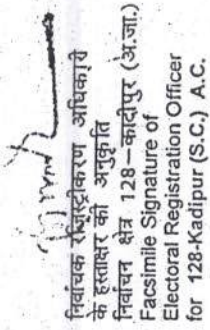 निर्वाचक रजिस्ट्रीकरण अधिकारी
के हस्ताक्षर की अनुकृति
निर्वाचन क्षेत्र 128–कादीपुर (अ.जा.)
Facsimile Signature of
Electoral Registration Officer
for 128-Kadipur (S.C.) A.C.